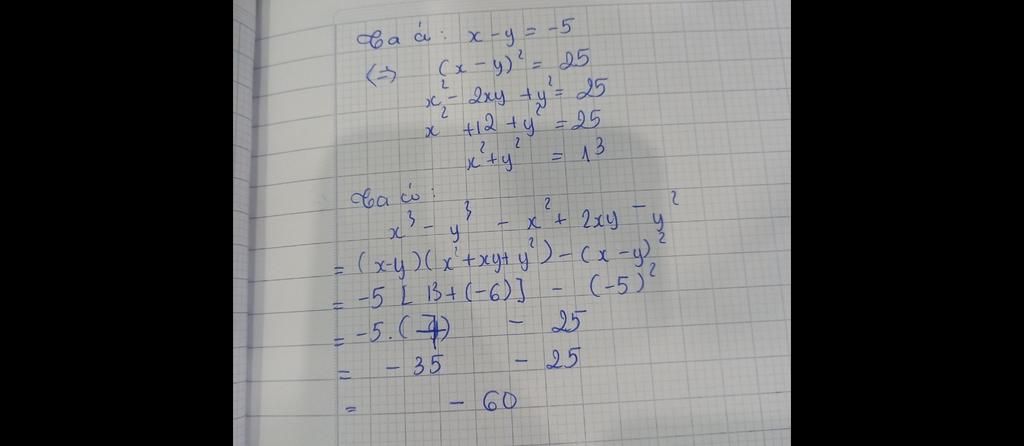 Ta có: x - y = -5
(=>) (x - y)² = 25
x² - 2xy + y² = 25
x² + 12 + y² = 25
x² + y² = 13
Ta có:
x³ - y³ - x² + 2xy - y²
= (x-y)(x² + xy + y²) - (x - y)²
= -5 [13 + (-6)] - (-5)²
= -5. (7) - 25
= - 35 - 25
= - 60